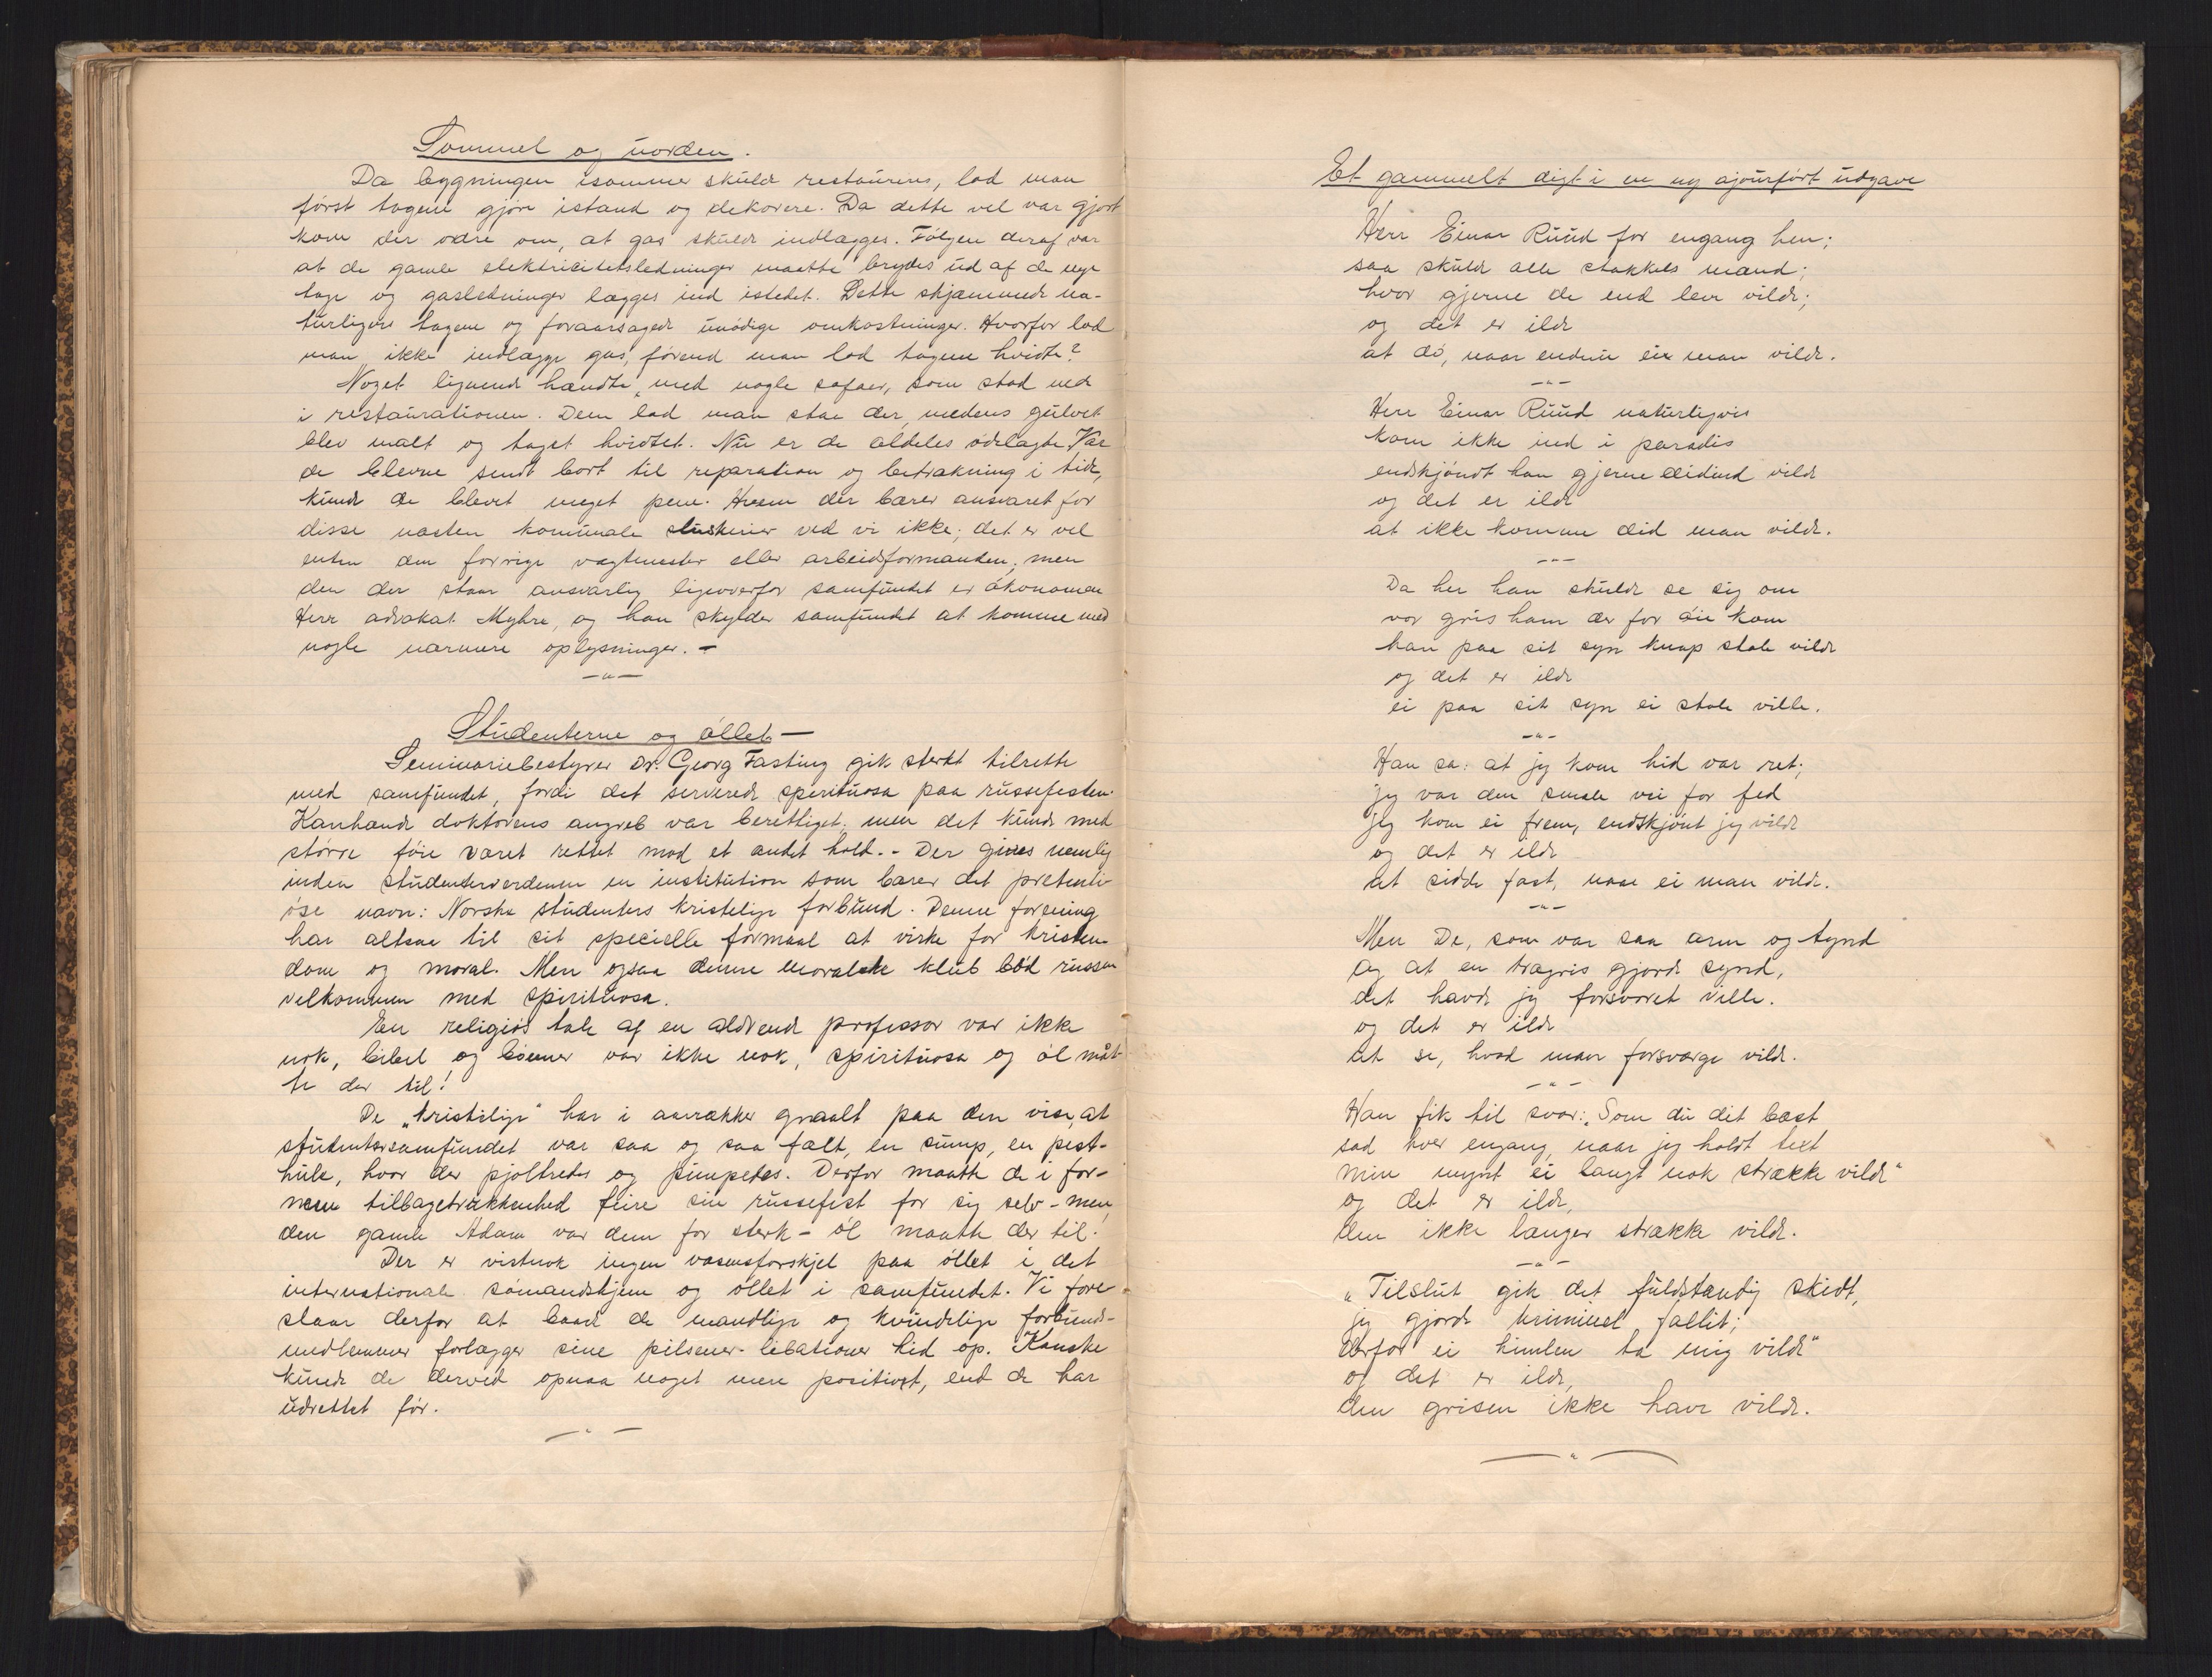 Tommel og uorden.
Da bygningen isommer skulde restaureres, lod man
først tagene gjøre istand og dekorere. Da dette vel var gjort
kom der ordre om, at gas skulde indlægges. Følgen deraf var
at de gamle elektricitetsledninger maatte brydes ud af de nye
tage og gasledninger lægges ind istedet. Dette skjæmmede na-
turligvis tagene og foraarsagede unødige omkostninger. Hvorfor lod
man ikke indlægge gas, førend man lod tagene hvidte?
Noget lignende hændte med nogle sofaer, som stod nede
i restaurationen. Dem lod man staa der, medens gulvet
blev malt og taget hvidtet. Nu er de aldeles ødelagte. Var
de blevne sendt bort til reparation og betrækning i tide,
kunde de blevet meget pene. Hvem der bærer ansvaret for
disse næsten komunale sluskerier ved vi ikke; det er vel
enten den forrige vagtmester eller arbeidsformanden; men
den der staar ansvarlig ligeoverfor samfundet er økonomen
Herr advokat Myhre, og han skylder samfundet at komme med
nogle nærmere oplysninger. –
— " —
Studenterne og øllet —
Seminariebestyrer Dr. Georg Fasting gik sterkt tilrette
med samfundet, fordi det serverede spirituosa paa russefesten.
Kanhænde doktorens angreb var berettiget; men det kunde med
større føie været rettet mod et andet hold. – Der gives nemlig
inden studenterverdenen en institution som bærer det prætenti-
øse navn: Norske studenters kristelige forbund. Denne forening
har altsaa til sit specielle formaal at virke for kristen-
dom og moral. Men ogsaa denne moralske klub bød russen
velkommen med spirituosa.
En religiøs tale af en aldrende professor var ikke
nok, bibel og bønner var ikke nok, spirituosa og øl måt-
te der til!
De „kristelige" har i aarrækker graalt paa den vise, at
studentersamfundet var saa og saa fælt, en sump, en pest-
hule, hvor der pjoltredes og pimpedes. Derfor maatte de i for-
nem tilbagetrukkenhed feire sin russefest for sig selv – men
den gamle Adam var dem for sterk – øl maatte der til!
Der er vistnok ingen væsensforskjel paa øllet i det
internationale sømandshjem og øllet i samfundet. Vi fore
slaar derfor at baade de mandlige og kvindelige forbunds-
medlemmer forlægger sine pilsener-libationer hid op. Kanske
kunde de derved opnaa noget mere positivt, end de har
udrettet før.
— " —
Et gammelt digt i en ny ajourført udgave
Herr Einar Ruud for engang hen;
saa skulde alle stakkels mænd;
hvor gjerne de end leve vilde;
og det er ilde
at dø, naar endnu ei man vilde.
— " —
Herr Einar Ruud naturligvis
kom ikke ind i paradis
endskjøndt han gjerne didind vilde
og det er ilde
at ikke komme did man vilde.
— " —
Da her han skulde se sig om
vor gris ham der for øie kom
han paa sit syn knap stole vilde
og det er ilde
ei paa sit syn ei stole ville.
— " —
Han sa: at jeg kom hid var ret;
jeg var den smale vei for fed
jeg kom ei frem, endskjønt jeg vilde
og det er ilde
at sidde fast, naar ei man vilde.
— " —
Men De, som var saa arm og tynd
og at en trægris gjorde synd,
det havde jeg forsvoret ville.
og det er ilde
at se, hvad man forsværge vilde.
— " —
Han fik til svar: „Som du dit bæst
sad hver engang, naar jeg holdt text
min mynt ei langt nok strække vilde"
og det er ilde,
den ikke længer strække vilde.
— " —
„Tilslut gik det fuldstændig skidt,
jeg gjorde kriminel fallit;
derfor ei himlen ta mig vilde"
og det er ilde,
den grisen ikke have vilde.
— " —